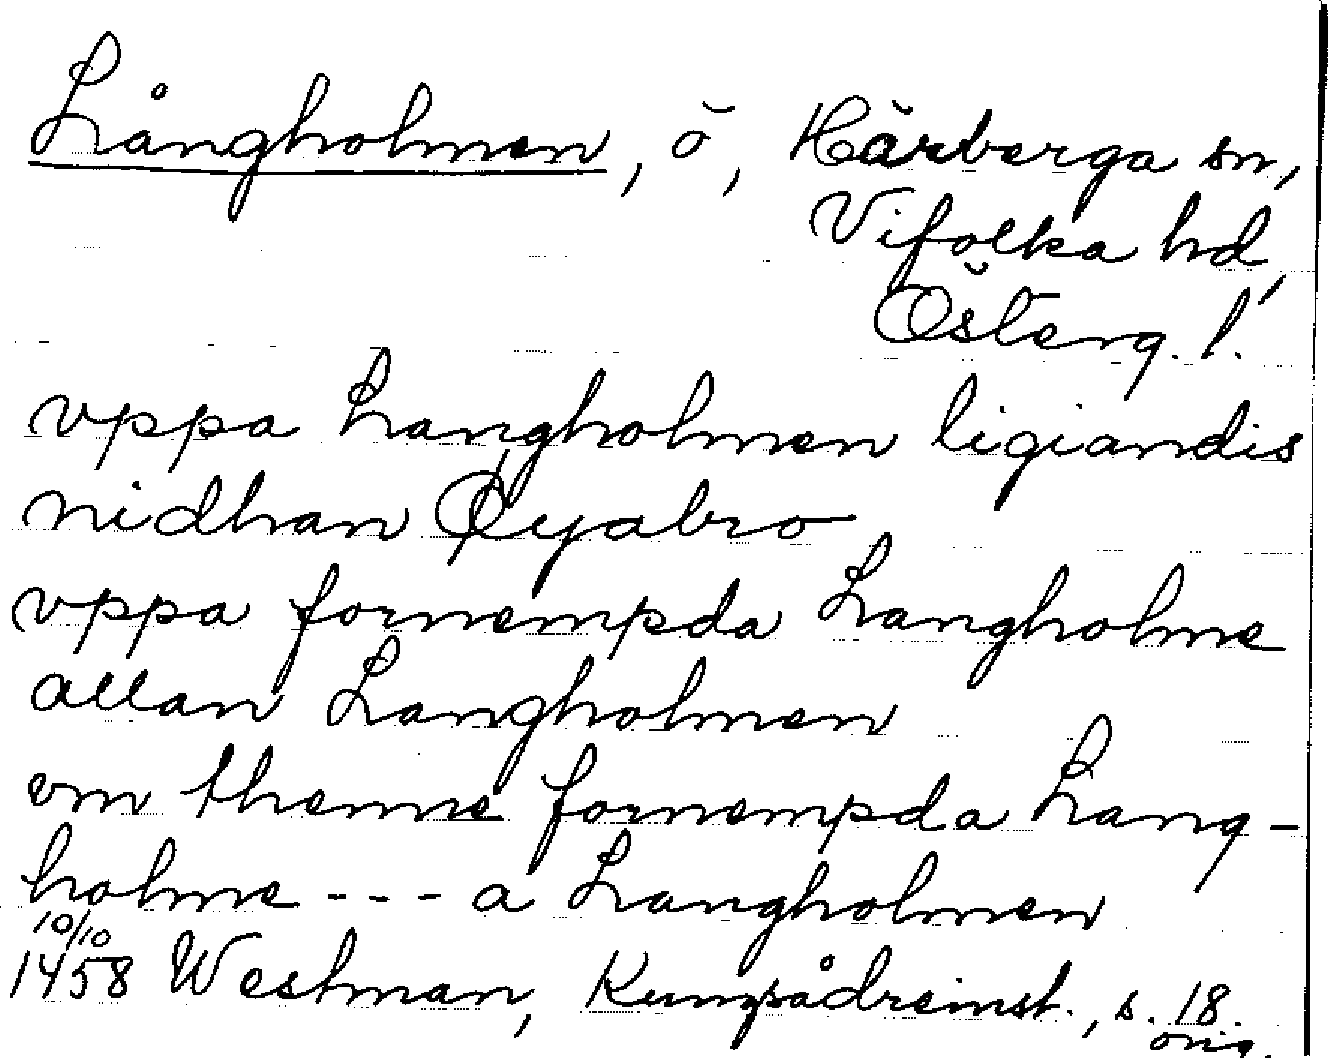 Långholmen, ö, Härberga sn,
Vifolka hd,
Österg. l.
vppa Langholmen ligiandis
nidhan Øyabro
vppa fornempda Langholme
allan Langholmen
vm thenne fornempda Lang-
holme --- a Langholmen
10/10
1458 Westman, Kungsådreinst., s. 18.
orig.